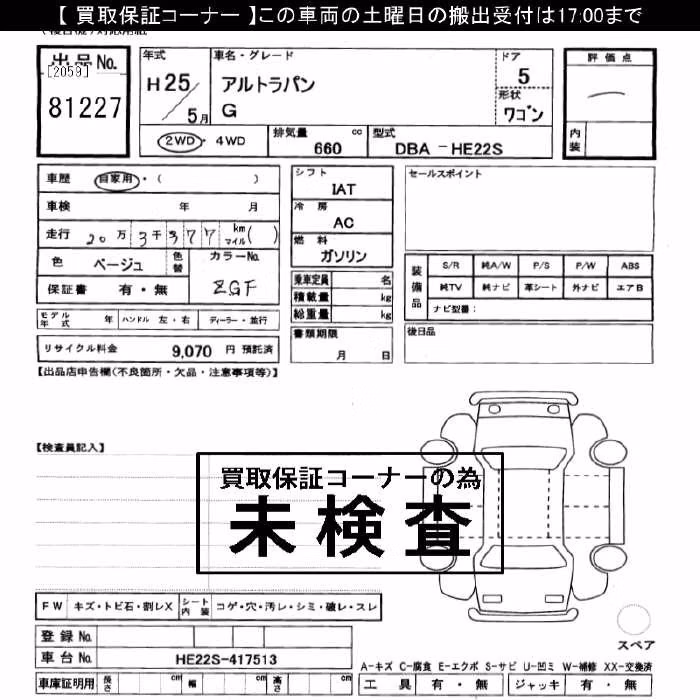 【 買取保証コーナー 】この車両の土曜日の搬出受付は17:00まで
出品No.
[2059]
81227
年式
H25/5月
車名・グレード
アルトラパン
G
ドア
5
形状
ワゴン
評価点
内装
2WD・4WD
排気量 cc
660
型式
DBA －HE22S
車歴 自家用・( )
車検 年 月
走行 20万3千377 km マイル( )
色 ベージュ 色替
カラーNo. ZGF
保証書 有・無
モデル年式 年 ハンドル 左・右 ディーラー・並行
リサイクル料金 9,070 円 預託済
シフト
IAT
冷房
AC
燃料
ガソリン
乗車定員 名
積載量 kg
総重量 kg
書類期限
月 日
セールスポイント
装備品
S/R 純A/W P/S P/W ABS
純TV 純ナビ 革シート 外ナビ エアB
ナビ型番：
後日品
【出品店申告欄(不良箇所・欠品・注意事項等)】
【検査員記入】
買取保証コーナーの為
未検査
FW キズ・トビ石・割レX シート内装 コゲ・穴・汚レ・シミ・破レ・スレ
登録No.
車台No. HE22S-417513
車庫証明用 長さ cm 幅 cm 高さ cm
スペア
A-キズ C-腐食 E-エクボ S-サビ U-凹ミ W-補修 XX-交換済
工具 有・無 ジャッキ 有・無